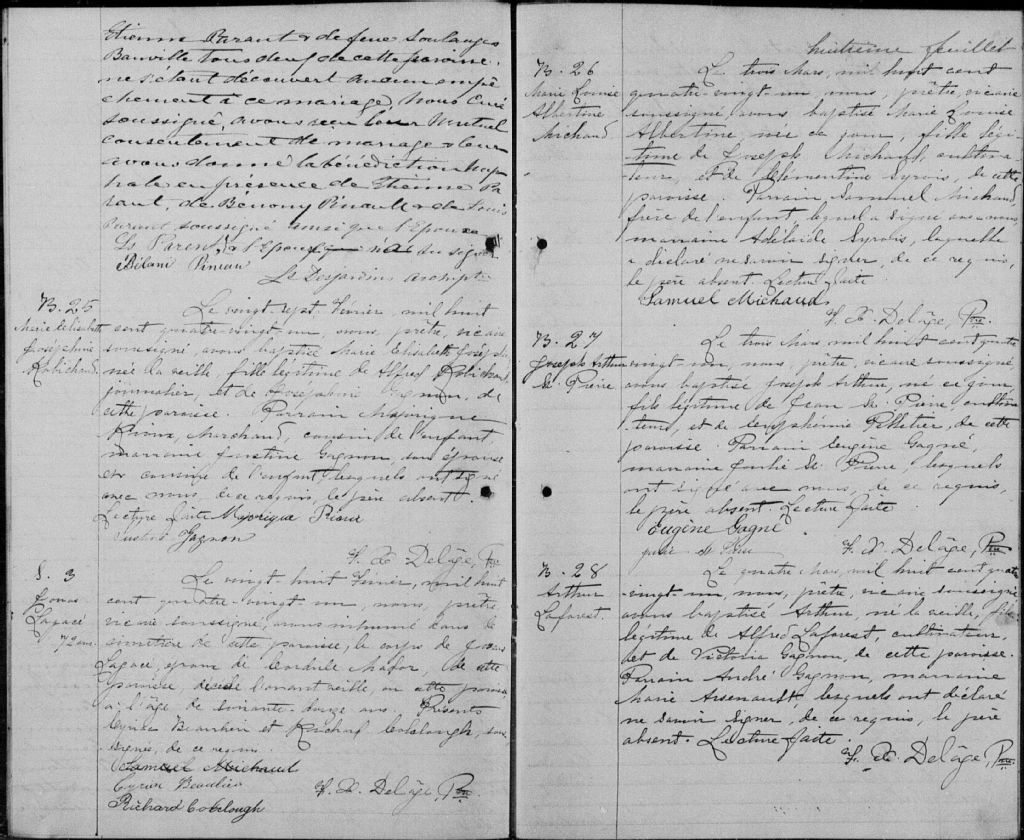 Etienne Parant & de feue Soulanges
Banville tous deux de cette paroisse.
ne s'étant découvert aucun empê
chement à ce mariage, Nous Curé
soussigné, avons reçu leur mutuel
consentement de mariage & leur
avons donné la bénédiction nup
tiale en présence de Etienne Pa
rant, de Benony Pinault & de Louis
Parant soussigné ainsi que l'Epouse
Ls Parent
Mélani Pineau
B. 25
Marie Elisabeth
Joséphine
Robichaud
Le vingt-sept Février, mil huit
cent quatre-vingt-un, nous, prêtre, vicaire
soussigné, avons baptisé Marie Elisabeth Joséphi
née la veille, fille légitime de Alfred Robichaud,
journalier, et de Joséphine Gagnon, de
cette paroisse. Parrain Majorique
Rioux, Marchand, cousin de l'enfant,
marraine Justine Gagnon, son épouse
et cousine de l'enfant, lesquels ont signé
avec nous, de ce requis, le père absent.
Lecture faite Majorique Rioux
Gagnon
F. X. Delâge, Ptre
S. 3
Jonas
Lagacé
72 ans
Le vingt-huit Février, mil huit
cent quatre-vingt-un, nous, prêtre,
vicaire soussigné, avons inhumé dans le
cimetière de cette paroisse, le corps de Jonas
Lagacé, époux de Cordule Major, de cette
paroisse, décédé l'avant-veille, en cette paroisse
à l'âge de soixante-douze ans. Présents
Cyrice Beaulieu et Richard Colclough, sous
signés, de ce requis.
Samuel Michaud
Cyrice Beaulieu
Richard Colclough
F. X. Delâge, Ptre.
huitième feuillet
B. 26
Marie Louise
Albertine
Michaud
Le trois Mars, mil huit cent
quatre-vingt-un, nous, prêtre, vicaire
soussigné, avons baptisé Marie Louise
Albertine, née ce jour, fille légi
time de Joseph Michaud, cultiva-
teur, et de Clémentine Syrois, de cette
paroisse. Parrain, Samuel Michaud,
frère de l'enfant, lequel a signé avec nous,
marraine Adélaïde Syrois, laquelle
a déclaré ne savoir signer, de ce requis,
le père absent. Lecture faite
Samuel Michaud
F. X. Delâge, Ptre.
B. 27
Joseph Arthur
St. Pierre
Le trois Mars, mil huit cent quatre
vingt-un, nous, prêtre, vicaire soussigné
avons baptisé Joseph Arthur, né ce jour,
fils légitime de Jean St. Pierre, cultiva
teur, et de Euphémie Pelletier, de cette
paroisse. Parrain Eugène Gagné,
marraine Julie St. Pierre lesquels
ont signé avec nous, de ce requis,
le père absent. Lecture faite
Eugène Gagné
F. X. Delâge, Ptre
B. 28
Arthur
Laforest.
Le quatre Mars, mil huit cent quatre
-vingt-un, nous, prêtre, vicaire soussigné
avons baptisé Arthur, né la veille, fils
légitime de Alfred Laforest, cultivateur,
et de Victoria Gagnon, de cette paroisse.
Parrain André Gagnon, marraine
Marie Arsenault, lesquels ont déclaré
ne savoir signer, de ce requis, le père
absent. Lecture faite.
F. X. Delâge, Ptre